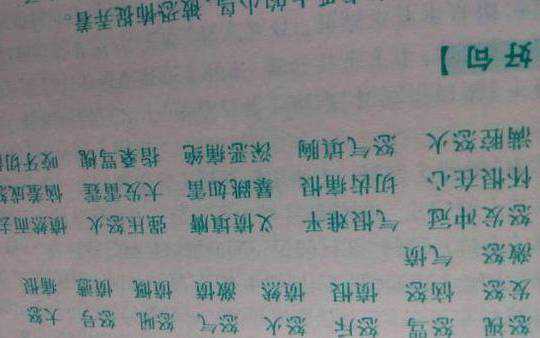 怒视 怒骂 怒斥 怒火 怒气 怒吼 怒号 大怒
发怒 恼怒 愤恨 愤然 激愤 愤慨 愤懑 痛恨
激怒 气愤
怒发冲冠 气恨难平 义愤填膺 强压怒火 愤然而去
怀恨在心 切齿痛恨 暴跳如雷 大发雷霆 恼羞成怒
满腔怒火 怒气填胸 深恶痛绝 指桑骂槐 咬牙切
好句】
上的小鸟，被恐怖捉弄着。